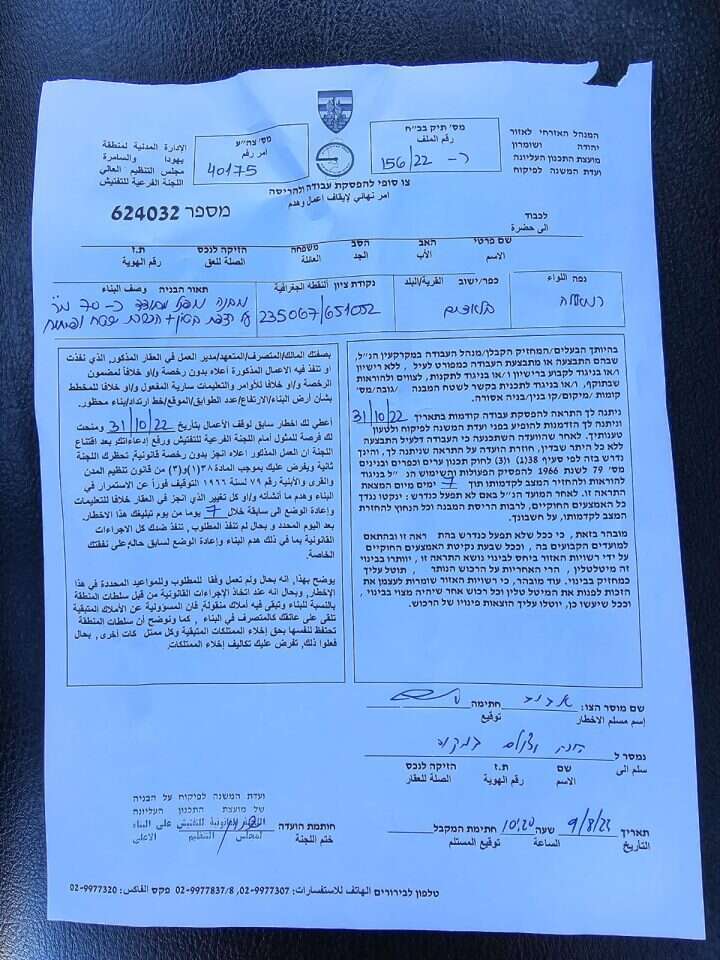 המנהל האזרחי לאזור
יהודה ושומרון
מועצת התכנון העליונה
ועדת המשנה לפיקוח
מס' תיק בכ"ח
رقم الملف
כ- 156/22
מס' צה"ע
أمر رقم
40175
الإدارة المدنية لمنطقة
يهودا والسامرة
مجلس التنظيم العالي
اللجنة الفرعية للتفتيش
צו סופי להפסקת עבודה ולהריסה
امر نهائي لإيقاف اعمال وهدم
מספר 624032
לכבוד
الى حضرة
שם פרטי האב הסב משפחה הזיקה לנכס ת.ז
الاسم الأب الجد العائلة الصلة للعق رقم الهوية
נפה اللواء
רמאללה
כפר/ישוב القرية/البلد
נקודת ציון النقطة الجغرافية
235067/651052
תאור הבניה وصف البناء
בהיותך הבעלים/המחזיק הקבלן/מנהל העבודה במקרקעין הנ"ל,
שבהם התבצעה או מתבצעת העבודה כמפורט לעיל, ללא רישיון
ו/או בניגוד לקבוע ברישיון ו/או בניגוד לתקנות, לצווים ולהוראות
שבתוקף, ו/או בניגוד לתכנית בקשר לשטח המבנה /גובה/מס'
קומות /מיקום/קו בנין/בניה אסורה.
ניתנה לך התראה להפסקת עבודה קודמות בתאריך 31/10/22
וניתנה לך הזדמנות להופיע בפני ועדת המשנה לפיקוח ולטעון
טענותיך. לאחר שהוועדה השתכנעה כי העבודה דלעיל התבצעה
ללא כל היתר שבדין, חוזרת הועדה על התראה שניתנה לך, והינך
נדרש בזה לפי סעיף 38(1) ו(3) לחוק תכנון ערים וכפרים ובנינים
מס' 79 לשנת 1966 להפסיק הפעולות והשימוש הנ"ל בניגוד
להוראות ולהחזיר המצב לקדמותו תוך 7 ימים מיום המצאת
התראה זו. לאחר המועד הנ"ל באם לא תפעל כנדרש : ינקטו נגדך
כל האמצעים החוקיים, לרבות הריסת המבנה וכל הנחוץ להחזרת
המצב לקדמותו, על חשבונך.
מובהר בזאת, כי ככל שלא תפעל כנדרש בהת ראה זו ובהתאם
למועדים הקבועים בה, וככל שבעת נקיטת האמצעים החוקיים
על ידי רשויות האזור ביחס לבינוי נושא התראה זו, יוותרו בבינוי
זה מיטלטלין, הרי האחריות על הרכוש הנותר, תוטל עליך
כמחזיק בבינוי. עוד מובהר, כי רשויות האזור שומרות לעצמן את
הזכות לפנות את המיטלטלין וכל רכוש אחר שיהיה מצוי בבינוי,
וככל שיעשו כן, יוטלו עליך הוצאות פינויו של הרכוש.
بصفتك المالك/المتصرف/المتعهد/مدير العمل في العقار المذكور, الذي نفذت
او تنفذ فيه الاعمال المذكورة أعلاه بدون رخصة و/او خلافا لمضمون
الرخصة و/او خلافا للأوامر والتعليمات سارية المفعول و/او خلافا للمخطط
بشأن أرض البناء/الارتفاع/عدد الطوابق/الموقع/خط ارتداد/بناء محظور.
أعطي لك اخطار سابق لوقف الأعمال بتأريخ 31/10/22 ومنحت
لك فرصة للمثول أمام اللجنة الفرعية للتفتيش ورفع إدعاءاتك. بعد اقتناع
اللجنة ان العمل المذكور اعلاه انجز بدون رخصة قانونية, تحظرك اللجنة
ثانية ويفرض عليك بموجب المادة ٣٨(١)و(٣) من قانون تنظيم المدن
والقرى والأبنية رقم ٧٩ لسنة ١٩٦٦ التوقيف فوراً عن الاستمرار في
البناء وهدم ما أنشأته و/او كل تغيير الذي انجز في العقار خلافا للتعليمات
وإعادة الوضع الى سابقة خلال 7 يوما من يوم تبليغك هذا الاخطار.
بعد اليوم المحدد و بحال لم تنفذ المطلوب, تنفذ ضدك كل الاجراءات
القانونية بما في ذلك هدم البناء وإعادة الوضع لسابق حاله, على نفقتك
الخاصة.
يوضح بهذا, انه بحال ولم تعمل وفقا للمطلوب وللمواعيد المحددة في هذا
الإخطار, وبحال انه عند اتخاذ الإجراءات القانونية من قبل سلطات المنطقة
بالنسبة للبناء وتبقى فيه أملاك منقولة, فان المسؤولية عن الأملاك المتبقية
تلقى على عاتقك كالمتصرف في البناء, كما ونوضح أن سلطات المنطقة
تحتفظ لنفسها بحق إخلاء الممتلكات المتبقية وكل ممتل كات أخرى, بحال
فعلوا ذلك, تفرض عليك تكاليف إخلاء الممتلكات.
שם מוסר הצו: חתימה
إسم مسلم الاخطار توقيع
נמסר ל
سلم الى
שם ת.ז הזיקה לנכס
الاسم رقم الهوية الصلة للعقار
תאריך 9/8/23 שעה 10:20 חתימת המקבל
التأريخ الساعة توقيع المستلم
חותמת הועדה
ختم اللجنة
ועדת המשנה לפיקוח על הבניה
של מועצת התכנון העליונה
اللجنة الفرعية للتفتيش على البناء
لمجلس التنظيم الاعلى
טלפון לבירורים الهاتف للاستفسارات: 02-9977307, 02-9977837/8 פקס الفاكس: 02-9977320